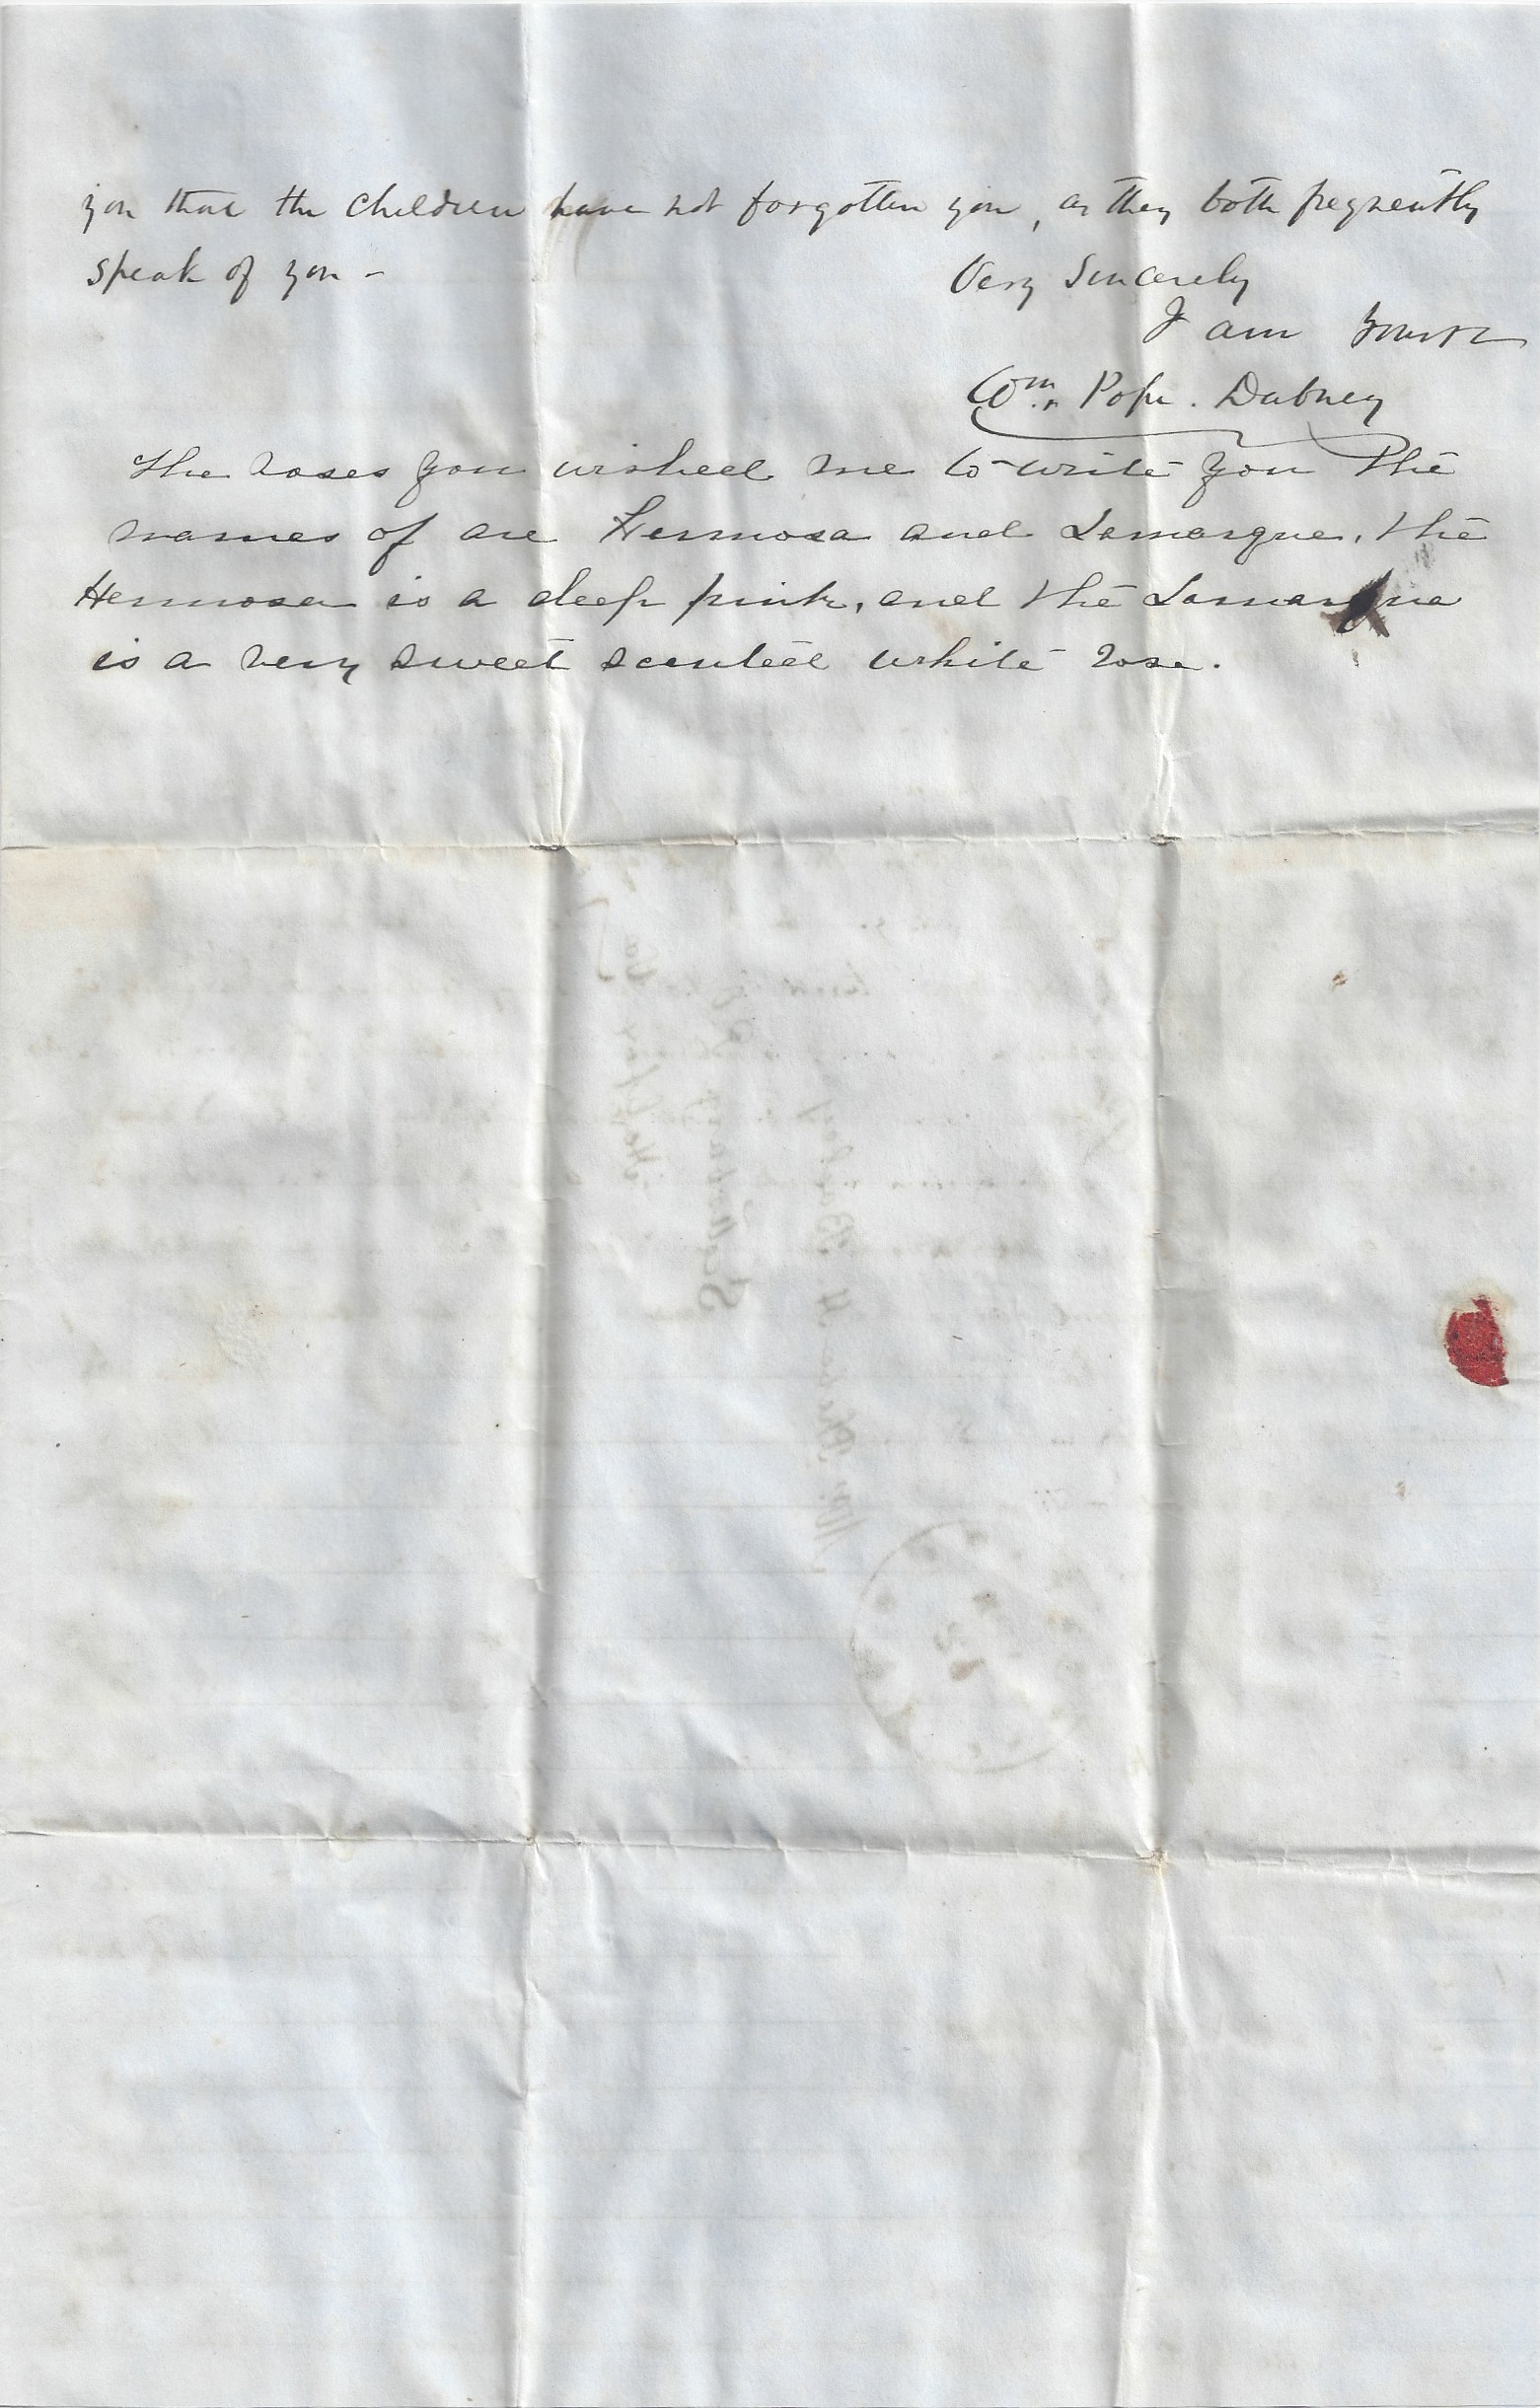 you that the children have not forgotten you, as they both frequently
speak of you -
Very Sincerely
I am yours
Wm. Pope. Dabney
The roses you wished me to write you the
names of are Hermosa and Lamarque, the
Hermosa is a deep pink, and the Lamarque
is a very sweet scented white rose.
Halifax Co
Staunton
22